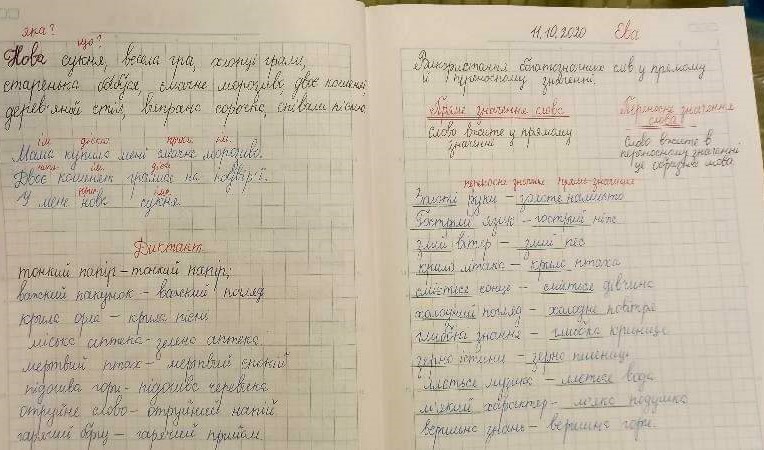 яка?
що?
Нова сукня, весела гра, хлопці грали,
старенька бабуся, смачне морозиво, двоє кошенят
дерев'яний стіл, випрана сорочка, співали пісню
ім. дієсл. прикм. ім.
Мама купила мені смачне морозиво.
числ. ім. дієсл.
Двоє кошенят гралися на подвір'ї.
прик. ім.
У мене нова сукня
Диктант
тонкий папір – тонкий папір;
важкий пакунок – важкий погляд
крила орла – крила пісні
міська аптека – зелена аптека
мертвий птах – мертвий спокій
підошва гори – підошва черевика
отруйне слово – отруйний напій
гарячий борщ – гарячий прийом
11.10.2020 Єва
Використання багатозначних слів у прямому
й переносному значенні
Пряме значення слова
Переносне значення
слова
Слово вжите у прямому
значенні
Слово вжите в
переносному значенні
це образна мова
переносне значення пряме значення
Золоті руки – золоте намисто
Гострий язик – гострий ніж
злий вітер – злий пес
крила літака – крила птаха
сміється сонце – сміється дівчина
холодний погляд – холодне повітря
глибокі знання – глибока криниця
зерно істини – зерно пшениці
ллється музика – ллється вода
м'який характер – м'яка подушка
вершина знань – вершина гори.